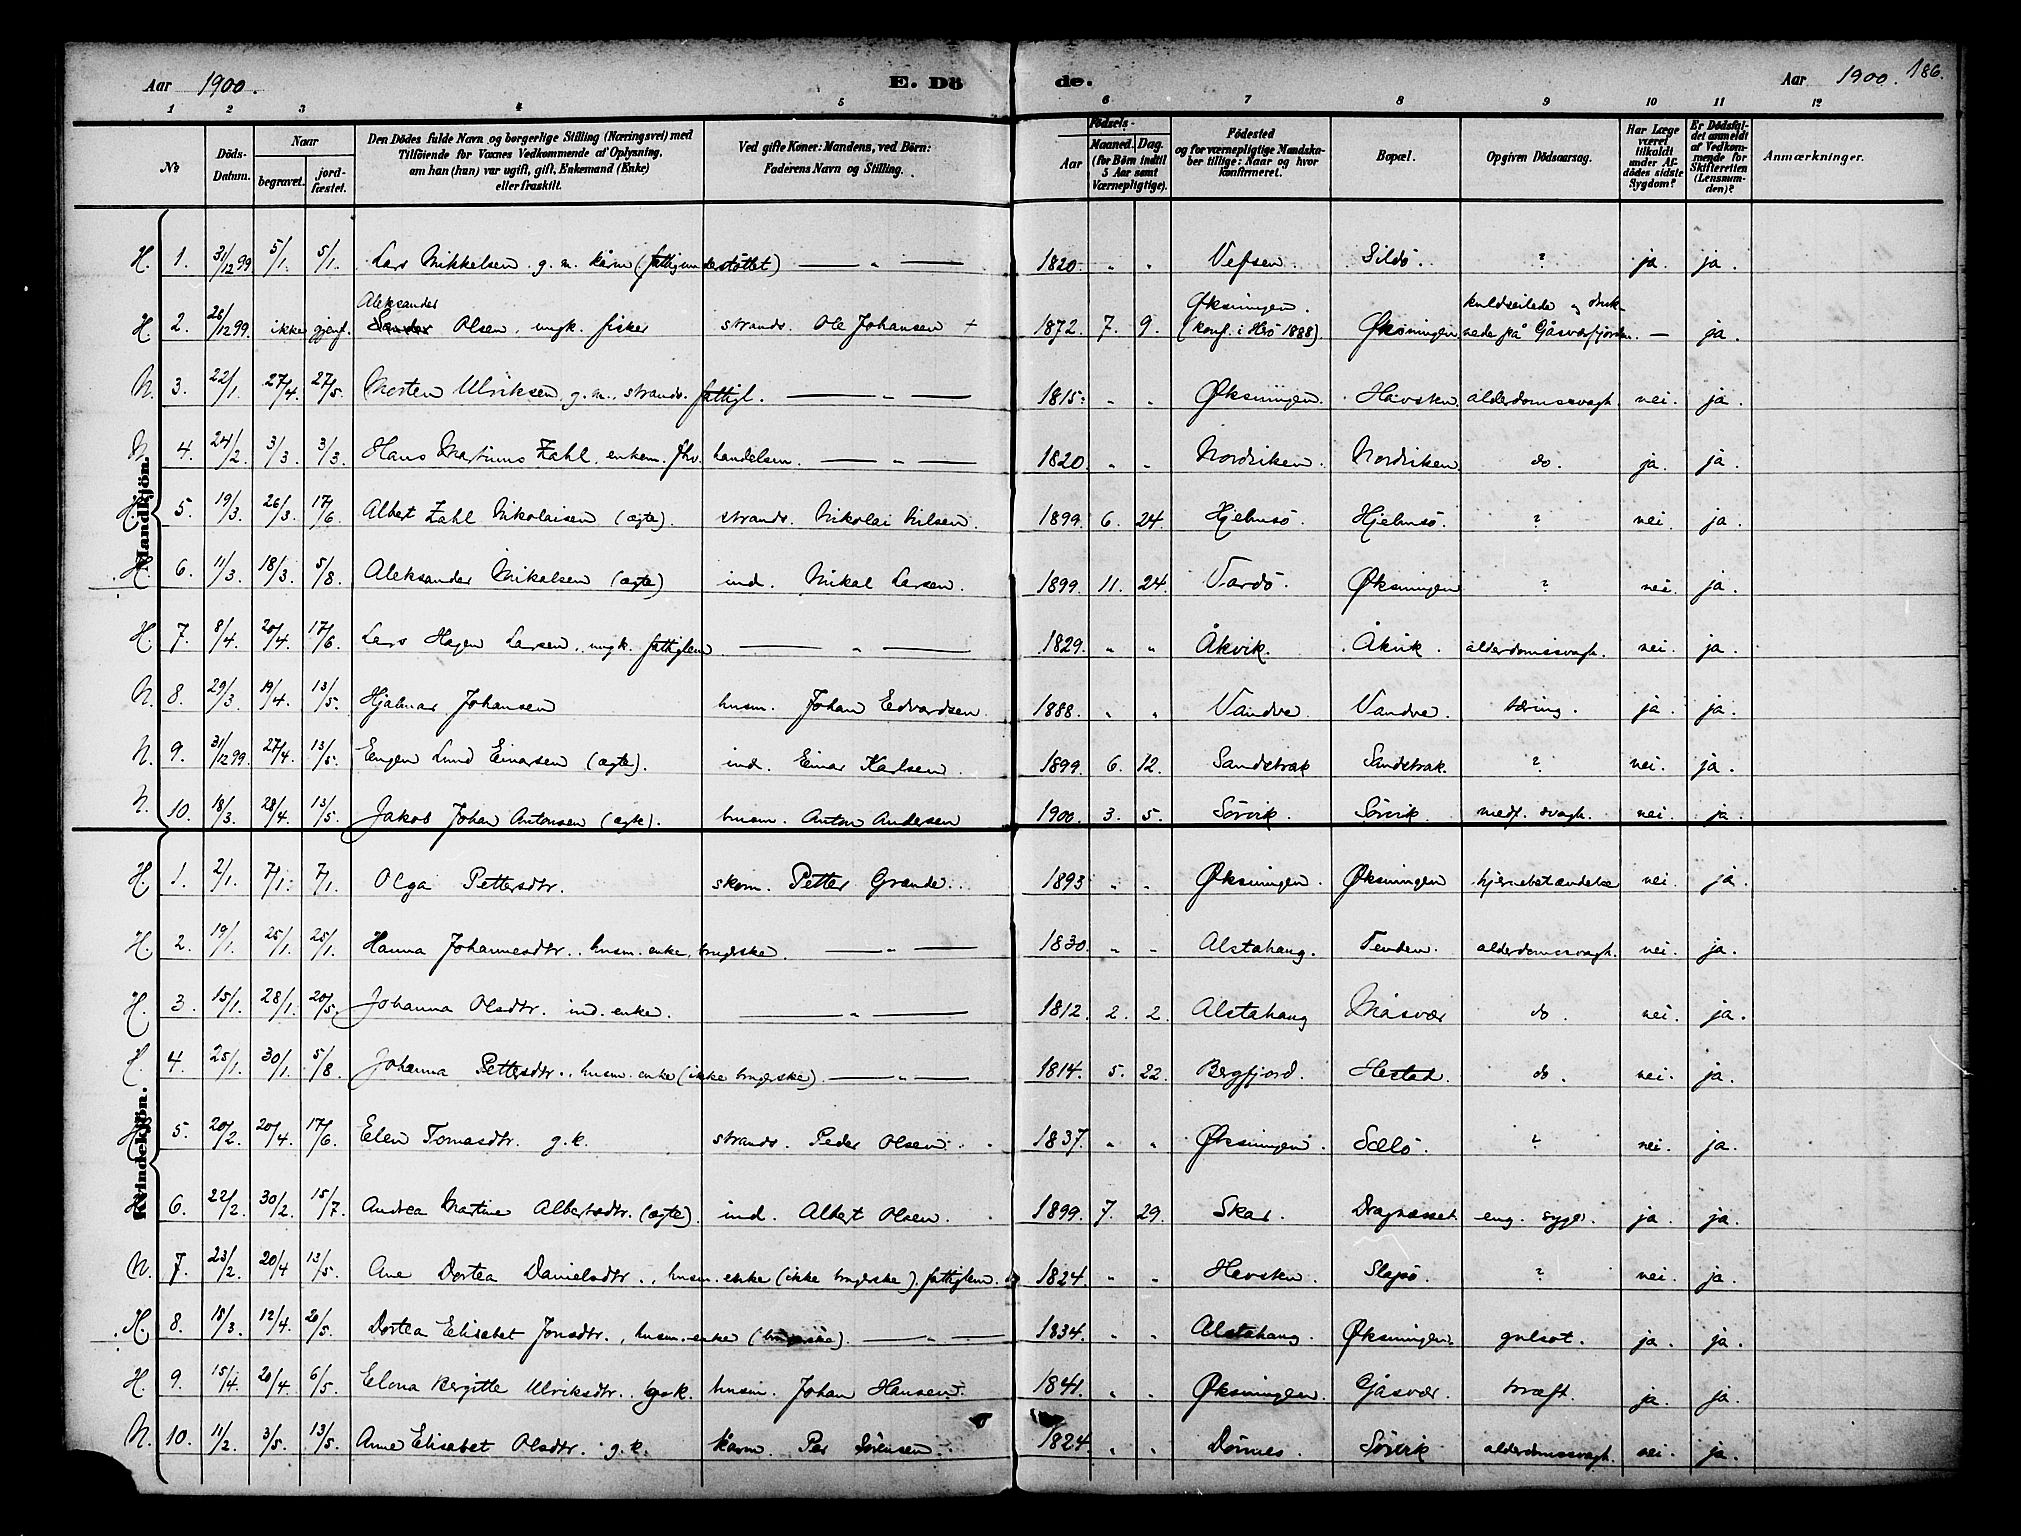 Aar 1900. E. Dö de. Aar 1900. 186.
1 2 3 4 5 6 7 8 9 10 11 12
No Döds-Datum. Naar begravet. jord-fæstet. Den Dödes fulde Navn og borgerlige Stilling (Næringsvei) med Tilföiende for Voxnes Vedkommende af Oplysning, om han (hun) var ugift, gift, Enkemand (Enke) eller fraskilt. Ved gifte Koner: Mandens, ved Börn: Faderens Navn og Stilling. Födsels- Aar Maaned. Dag. (for Börn indtil 5 Aar samt Værnepligtige). Födested og for værnepligtige Mandskaber tillige: Naar og hvor konfirmeret. Bopæl. Opgiven Dödsaarsag. Har Læge været tilkaldt under Afdödes sidste Sygdom? Er Dödsfaldet anmeldt af Vedkommende for Skifteretten (Lensmanden)? Anmærkninger.
Mandkjön.
H. 1. 31/12 99 5/1. 5/1. Lars Mikkelsen g. m. kårm (fattigunderstöttet) — „ — 1820. „ „ Vefsen. Sildö. ? ja. ja.
H. 2. 26/12 99. ikke gjenf. Aleksander Sander Olsen, ungk. fisker strands. Ole Johansen + 1872. 7. 9. Øksningen. (konf. i Herö 1888). Øksningen kuldseilede og druknede på Gåsværfjorden. — ja.
N. 3. 22/1. 27/4. 27/5. Morten Ulriksen, g. m. strands. fattigl. — „ — 1815. „ „ Øksningen. Havsten. alderdomssvagh. nei. ja.
N. 4. 24/2. 3/3. 3/3. Hans Martinus Zahl, enkem. fhv. handelsm. — „ — 1820. „ „ Nordviken. Nordviken do. ja. ja.
H. 5. 19/3. 26/3. 17/6. Albert Zahl Nikolaisen (ægte). strands. Nikolai Nilsen. 1899. 6. 24. Hjelmsö. Hjelmsö. ? nei. ja.
H. 6. 11/3. 18/3. 5/8. Aleksander Mikalsen (ægte) ind. Mikal Larsen. 1899. 11. 24. Vardö. Øksningen ? nei. ja.
H. 7. 8/4. 20/4. 17/6. Lars Hagen Larsen, ungk. fattiglem — „ — 1829. „ „ Åkvik. Åkvik. alderdomssvagh. nei. ja.
N. 8. 29/3. 19/4. 13/5. Hjalmar Johansen husm. Johan Edvardsen. 1888. „ „ Vandve. Vandve. tæring. ja. ja.
N. 9. 31/12 99. 27/4. 13/5. Eugen Lund Einarsen (ægte). ind. Einar Karlsen. 1899. 6. 12. Sandstrak Sandstrak. ? nei. ja.
N. 10. 18/3. 28/4. 13/5. Jakob Johan Antonsen (ægte). husm. Anton Andersen 1900. 3. 5. Sörvik. Sörvik. medf. svagh. nei. ja
Kvindekjön.
H. 1. 2/1. 7/1. 7/1. Olga Pettersdtr. skom. Petter Grande. 1893 „ „ Øksningen. Øksningen hjernebetændelse nei. ja.
H. 2. 19/1. 25/1. 25/1. Hanna Johannesdtr., husm. enke, brugerske. — „ — 1830. „ „ Alstahaug. Tenden. alderdomssvagh. nei. ja.
H. 3. 15/1. 28/1. 20/5. Johanna Olsdtr. ind. enke. — „ — 1812. 2. 2. Alstahaug Måsvær do. nei. ja.
H. 4. 25/1. 30/1. 5/8. Johanna Pettersdtr., husm. enke (ikke brugerske) — „ — 1814. 5. 22. Bergfjord. Hestad. do. nei. ja.
H. 5. 20/2. 20/4. 17/6. Elen Tomasdtr. g. k. strands. Peder Olsen. 1837. „ „ Øksningen. Sælö. ? nei. ja.
H. 6. 22/2. 30/2. 15/7. Andrea Martine Albertsdtr. (ægte). ind. Albert Olsen. 1899. 7. 29. Skar. Dragnæsset eng. syge. ja. ja.
N. 7. 23/2. 20/4 13/5. Ane Dortea Danielsdtr., husm. enke (ikke brugerske), fattiglem. 1824. „ „ Havsten. Slapö. ? nei. ja.
H. 8. 18/3. 12/4. 20/5. Dortea Elisabet Jonsdtr., husm. enke (brugerske) — „ — 1834. „ „ Alstahaug. Øksningen. gulsot. ja. ja.
H. 9. 15/4. 20/4. 6/5. Elena Bergitte Ulriksdtr., g. k. husm. Johan Hansen. 1841. „ „ Øksningen. Gåsvær. kræft. ja. ja.
N. 10. 11/2. 3/5. 13/5. Anne Elisabet Olsdtr. g. k. kårm. Per Sörensen. 1824 „ „ Dönnes. Sörvik alderdomssvagh. nei. ja.